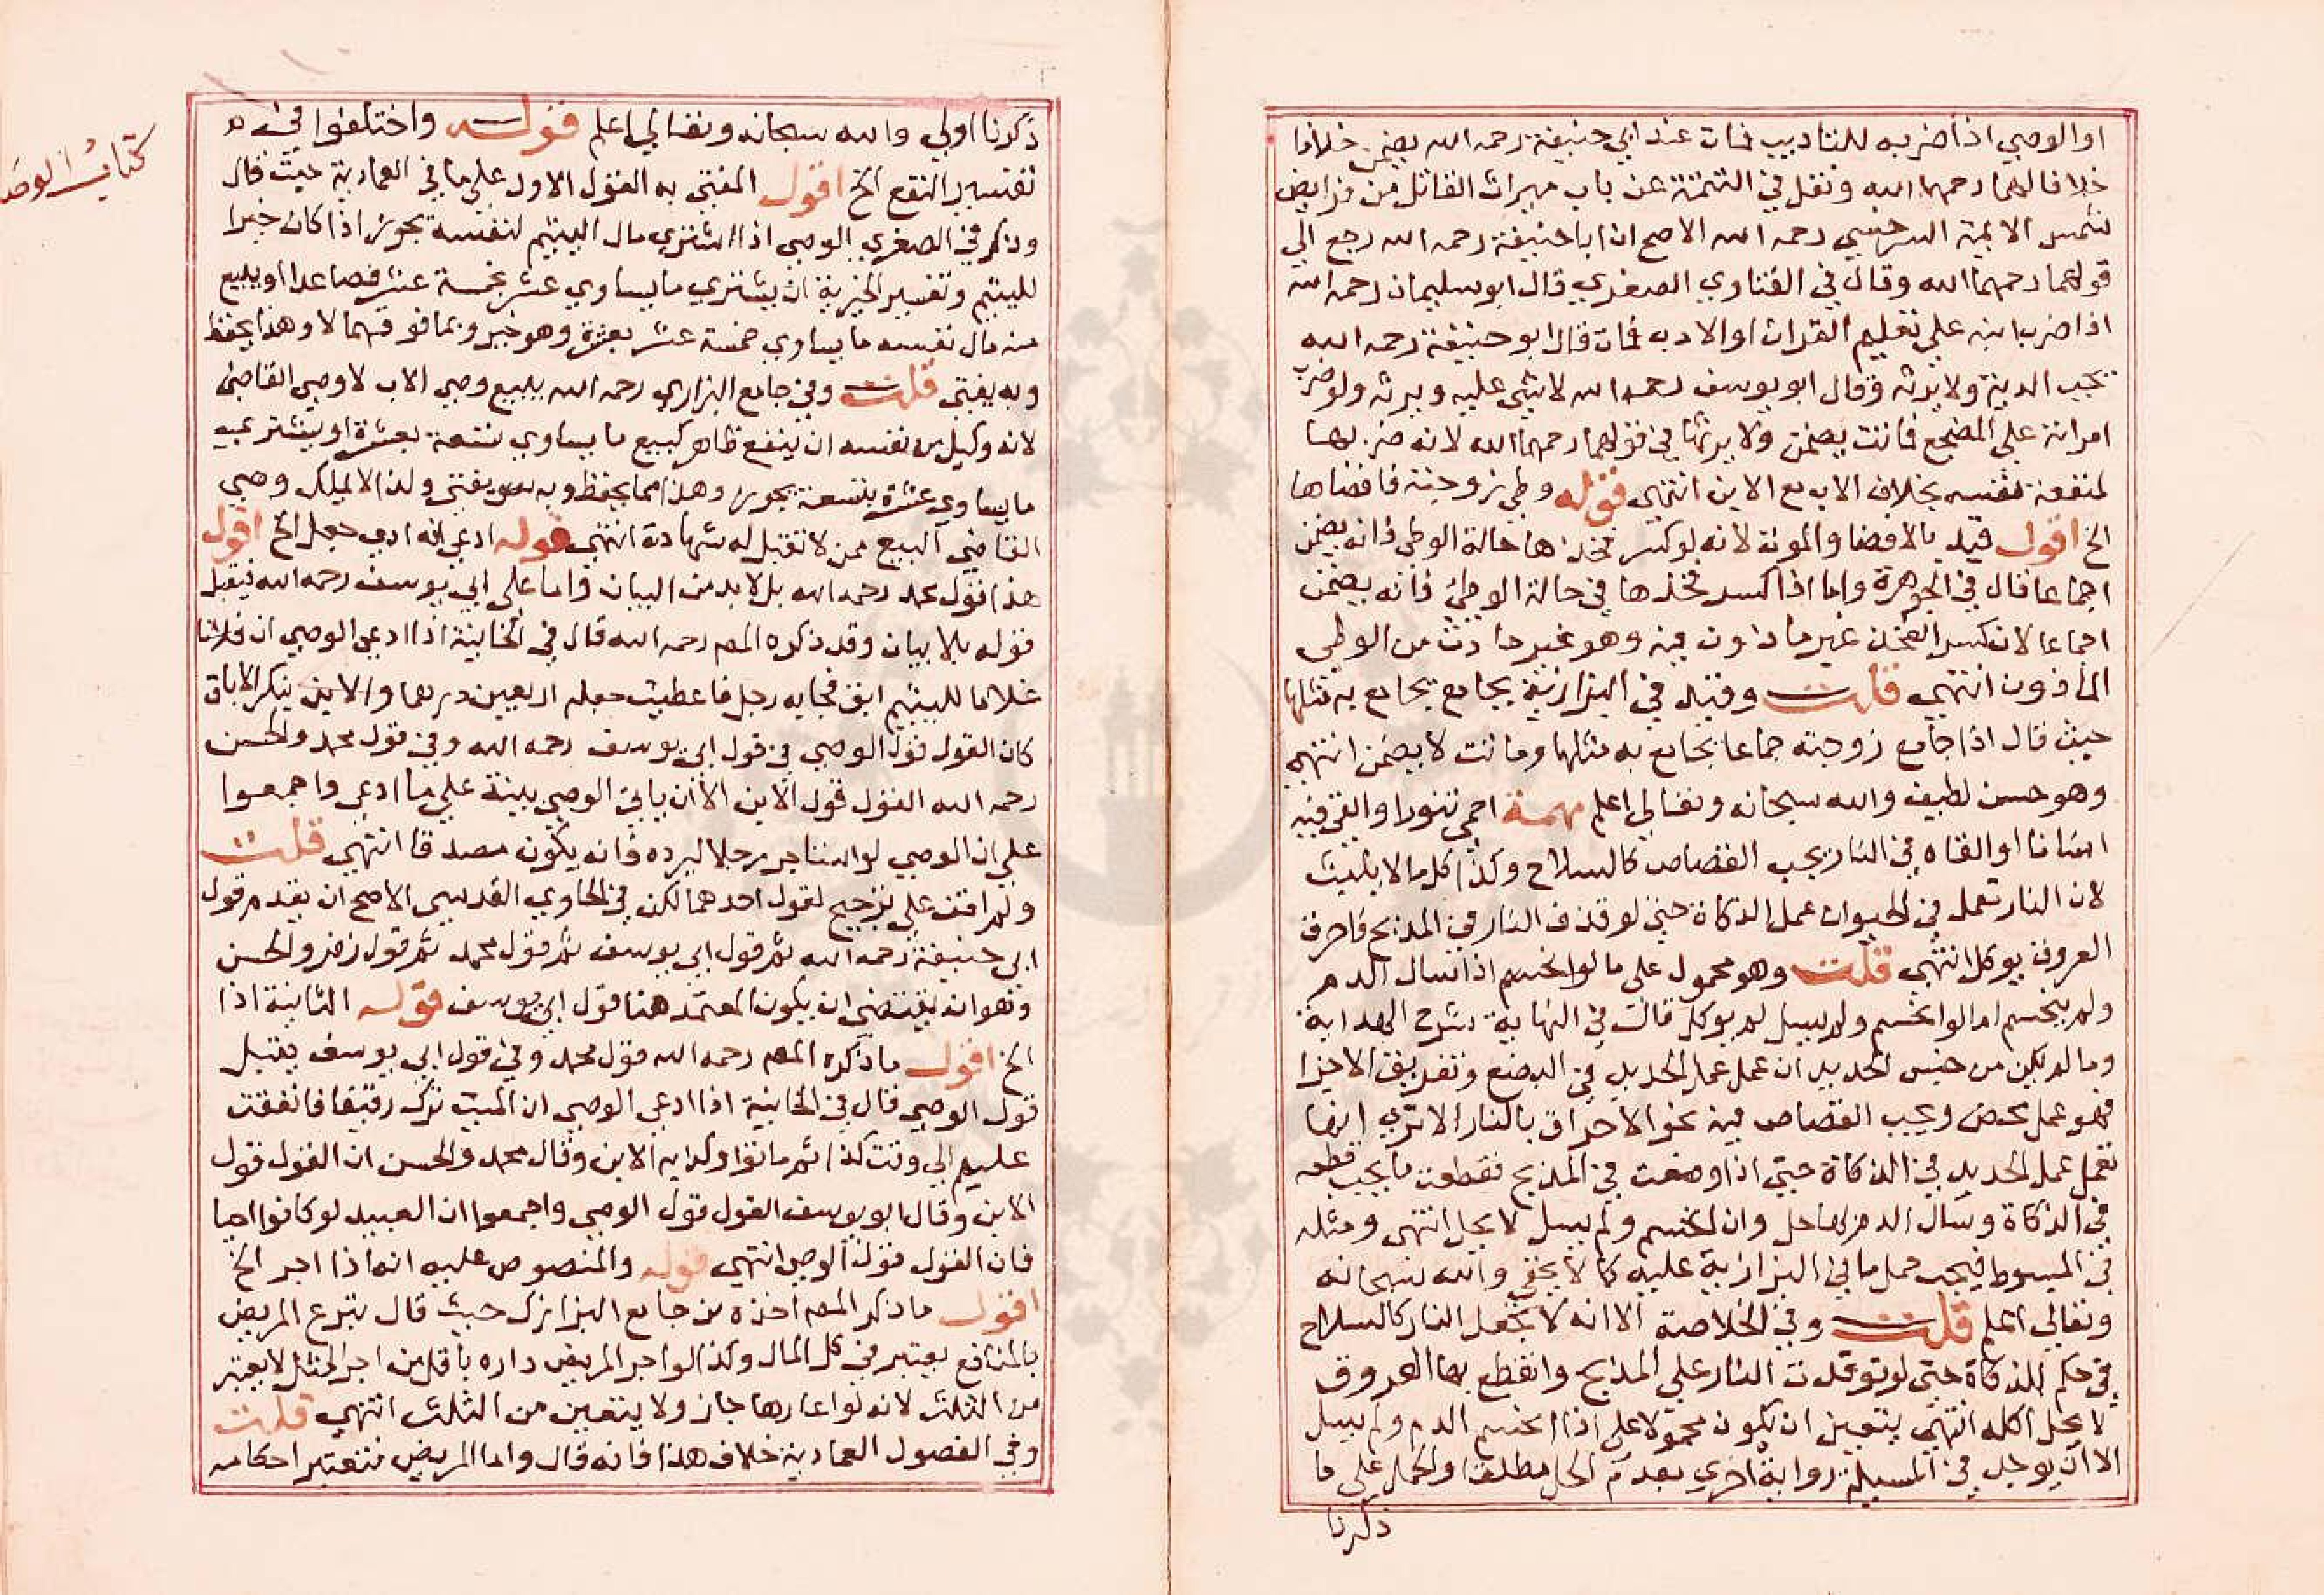 او الوصي اذا ضربه للتاديب فمات عند ابي حنيفة رحمه الله يضمن خلافا
خلافا لهما رحمهما الله ونقل في التتمة عن باب ميراث القاتل من فرايض
شمس الايمة السرخسي رحمه الله الاصح ان ابا حنيفة رحمه الله رجع الي
قولهما رحمهما الله وقال في الفتاوي الصغري قال ابو سليمان رحمه الله
اذا ضرب ابنه علي تعليم القران او الادب فمات قال ابو حنيفة رحمه الله
تجب الدية ولا يرثه وقال ابو يوسف رحمه الله لا شي عليه ويرثه ولو ضرب
امراته علي المضجع فماتت يضمن ولا يرثها في قولهما رحمهما الله لانه ضربها
لمنفعة نفسه بخلاف الاب مع الابن انتهي قوله وطي زوجته فافضاها
الخ اقول قيد بالافضا والموت لانه لو كسر فخذها حالة الوطي فانه يضمن
اجماعا قال في الجوهرة واما اذا كسر فخذها في حالة الوطئ فانه يضمن
اجماعا لان كسر الفخذ غير ماذون فيه وهو غير حادث من الوطي
الماذون انتهي قلت وقيد في البزازية بجامع يجامع به مثلها
حيث قال اذا جامع زوجته جماعا يجامع به مثلها وماتت لا يضمن انتهي
وهو حسن لطيف والله سبحانه وتعالي اعلم مهمة احمي تنورا والقي فيه
انسانا او القاه في النار يجب القصاص كالسلاح وكذا كل ما لا يلبث
لان النار تعمل في الحيوان عمل الذكاة حتي لو قذف النار في المذبح فاحرق
العروق يوكل انتهي قلت وهو محمول علي ما لو انحسم اذا سال الدم
ولم ينحسم اما لو انحسم ولم يسل لم يوكل قال في النهاية شرح الهداية
وما لم يكن من جنس الحديد ان عمل عمل الحديد في البضع وتفريق الاجزا
فهو عمل محض ويجب القصاص فيه نحو الاحراق بالنار الا تري انها
تعمل عمل الحديد في الذكاة حتي اذا وضعت في المذبح فقطعت ما يجب قطعه
في الذكاة وسال الدم بها حل وان انحسم ولم يسل لا يحل انتهي ومثله
في المبسوط فيجب حمل ما في البزازية عليه كما لا يخفي والله سبحانه
وتعالي اعلم قلت وفي الخلاصة الا انه لا يجعل النار كالسلاح
في حكم الذكاة حتي لو توقدت النار علي المذبح وانقطع بها العروق
لا يحل اكله انتهي يتعين ان يكون محمولا علي اذا انحسم الدم ولم يسل
الا ان يوجد في المسيلة رواية اخري بعدم الحل مطلقا والحمل علي ما
ذكرنا
كتاب الوصـ
ذكرنا اولي والله سبحانه وتعالي اعلم قوله واختلفوا في
تفسير النفع الخ اقول المفتي به القول الاول علي ما في العمادية حيث قال
وذكر في الصغري الوصي اذا اشتري مال اليتيم لنفسه يجوز اذا كان خيرا
لليتيم وتفسير الخيرية ان يشتري ما يساوي عشر بخمسة عشر فصاعدا او يبيع
من مال نفسه ما يساوي خمسة عشر بعشرة وهو خير وبما فوقهما لا وهذا يحفظ
وبه يفتي قلت وفي جامع البزازي رحمه الله يبيع وصي الاب لا وصي القاضي
لانه وكيل من نفسه ان ينفع ظاهر كبيع ما يساوي تسعة بعشرة او يشتري
ما يساوي عشرة بتسعة يجوز وهذا مما يحفظ وبه يفتي ولذا لا يملك وصي
القاضي البيع ممن لا تقبل له شهادة انتهي قوله ادعي انه ادي جعل الخ اقول
هذا قول محمد رحمه الله بل لا بد من البيان واما علي ابي يوسف رحمه الله فيقبل
قوله بلا بيان وقد ذكره المص رحمه الله قال في الخانية اذا ادعي الوصي ان فلانا
غلاما لليتيم ابق فجا به رجل فاعطيت جعله اربعين درهما والابن ينكر الاباق
كان القول قول الوصي في قول ابي يوسف رحمه الله وفي قول محمد والحسن
رحمه الله القول قول الابن الا ان ياتي الوصي ببينة علي ما ادعي واجمعوا
علي ان الوصي لو استاجر رجلا ليرده فانه يكون مصدقا انتهي قلت
ولم اقف علي ترجيح لقول احدهما لكن في الحاوي القدسي الاصح ان يقدم قول
ابي حنيفة رحمه الله ثم قول ابي يوسف ثم قول محمد ثم قول زفر والحسن
وهو انه يقتضي ان يكون المعتمد هنا قول ابي يوسف قوله الثانية اذا
الخ اقول ما ذكره المص رحمه الله قول محمد وفي قول ابي يوسف يقبل
قول الوصي قال في الخانية اذا ادعي الوصي ان الميت ترك رقيقا فانفقت
عليهم الي وقت كذا ثم ماتوا وكذبه الابن وقال محمد والحسن ان القول قول
الابن وقال ابو يوسف القول قول الوصي واجمعوا ان العبيد لو كانوا احيا
فان القول قول الوصي انتهي قوله والمنصوص عليه انه اذا اجر الخ
اقول ما ذكر المص اخذه من جامع البزازي حيث قال تبرع المريض
بالمنافع يعتبر في كل المال وكذا لو اجر المريض داره باقل من اجر المثل لا يعتبر
من الثلث لانه لو اعارها جاز ولا يتعين من الثلث انتهي قلت
وفي الفصول العمادية خلاف هذا فانه قال واما المريض فتعتبر احكامه